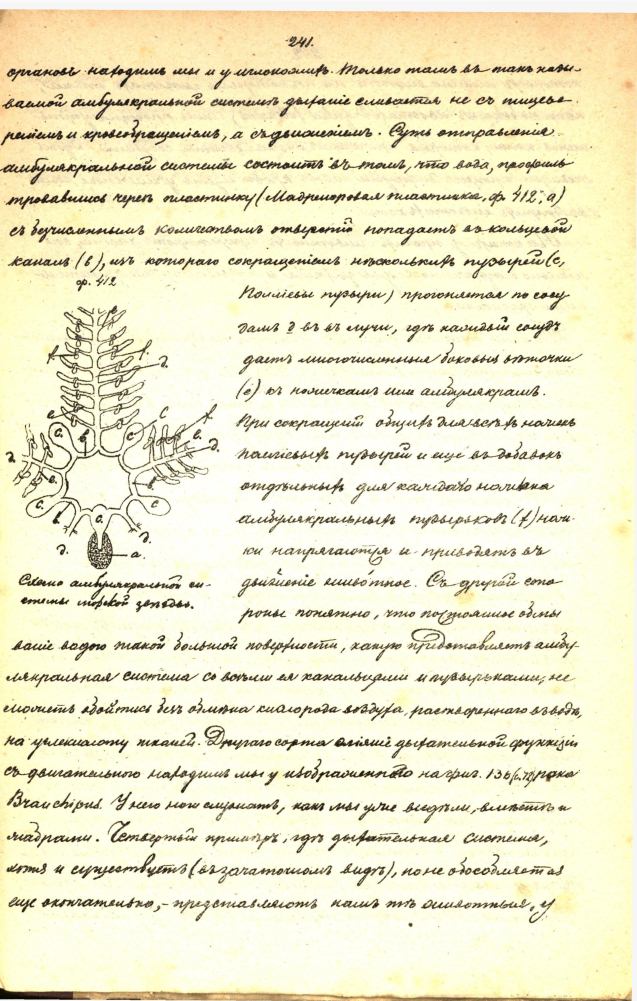 241.
органовъ находимъ мы и у иглокожихъ. Только тамъ въ такъ назы-
ваемой амбулякральной системѣ дыханіе сливается не съ пищева-
реніемъ и кровеобращеніемъ, а съ движеніемъ. Суть отправленія
амбулякральной системы состоитъ въ томъ, что вода, профиль-
тровавшись черезъ пластинку (Мадрепоровая пластинка, ф. 412, а)
съ безчисленнымъ количествомъ отверстій попадаетъ въ кольцевой
каналъ (b), изъ котораго сокращеніемъ нѣсколькихъ пузырей (c,
ф. 412
Поліевы пузыри) прогоняется по сосу-
дамъ d въ въ лучи, гдѣ каждый сосудъ
даетъ многочисленныя боковыя вѣточки
(e) къ ножичкамъ или амбулякрамъ.
При сокращеніи общихъ для всѣхъ ножекъ
поліевыхъ пузырей и еще въ добавокъ
отдѣльныхъ для каждаго ножика
амбулякральныхъ пузырьковъ (f) нож-
ки напрягаются и приводятъ въ
движеніе животное. Съ другой сто-
роны понятно, что постоянное обмы
Схема амбулякральной си-
стемы морской звѣзды.
ваніе водою такой большой поверхности, какую представляетъ амбу-
лякральная система со всѣми ея канальцами и пузырьками, не
можетъ обойтись безъ обмѣна кислорода воздуха, раствореннаго въ водѣ,
на углекислоту тканей. Другаго сорта сліяніе дыхательной функціи
съ двигательною находимъ мы у изображеннаго на фиг. 136 рака
Branchipus. У него ноги служатъ, какъ мы уже видѣли, вмѣстѣ и
жабрами. Четвертый примѣръ, гдѣ дыхательная система,
хотя и существуетъ (въ зачаточномъ видѣ), но не обособляется
еще окончательно, - представляютъ намъ тѣ животныя, у